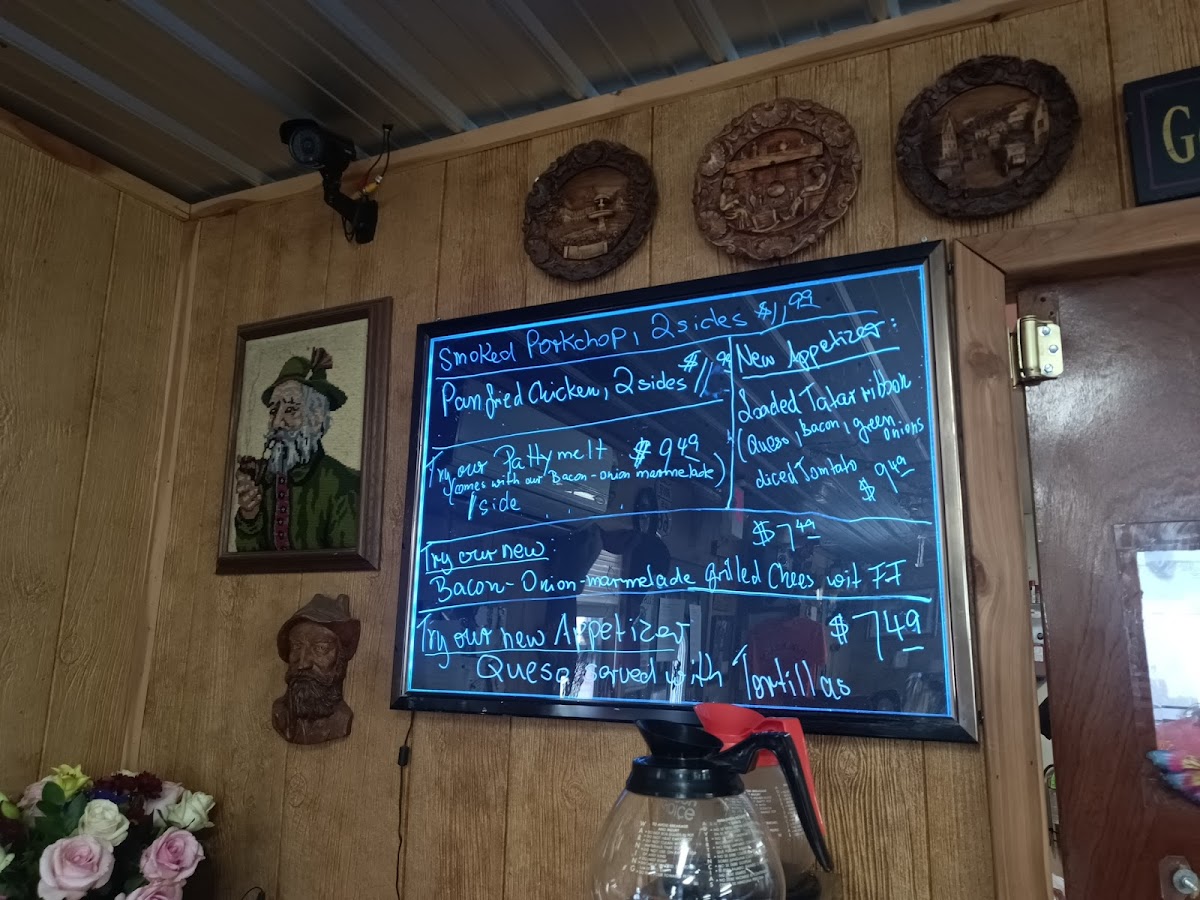 Smoked Porkchop, 2 sides $11,99
Pan fried Chicken, 2 sides $11,99
Try our Pattymelt $9 49
(comes with our Bacon-onion marmelade)
1 side
New Appetizer:
Loaded Tatar ribbon
(Queso, Bacon, green
onions
diced Tomtato
$9 49
Try our new: $7 49
Bacon-Onion-marmelade grilled Chees wit FF
Try our new Appetizer $7 49
Queso served with Tortillas
G